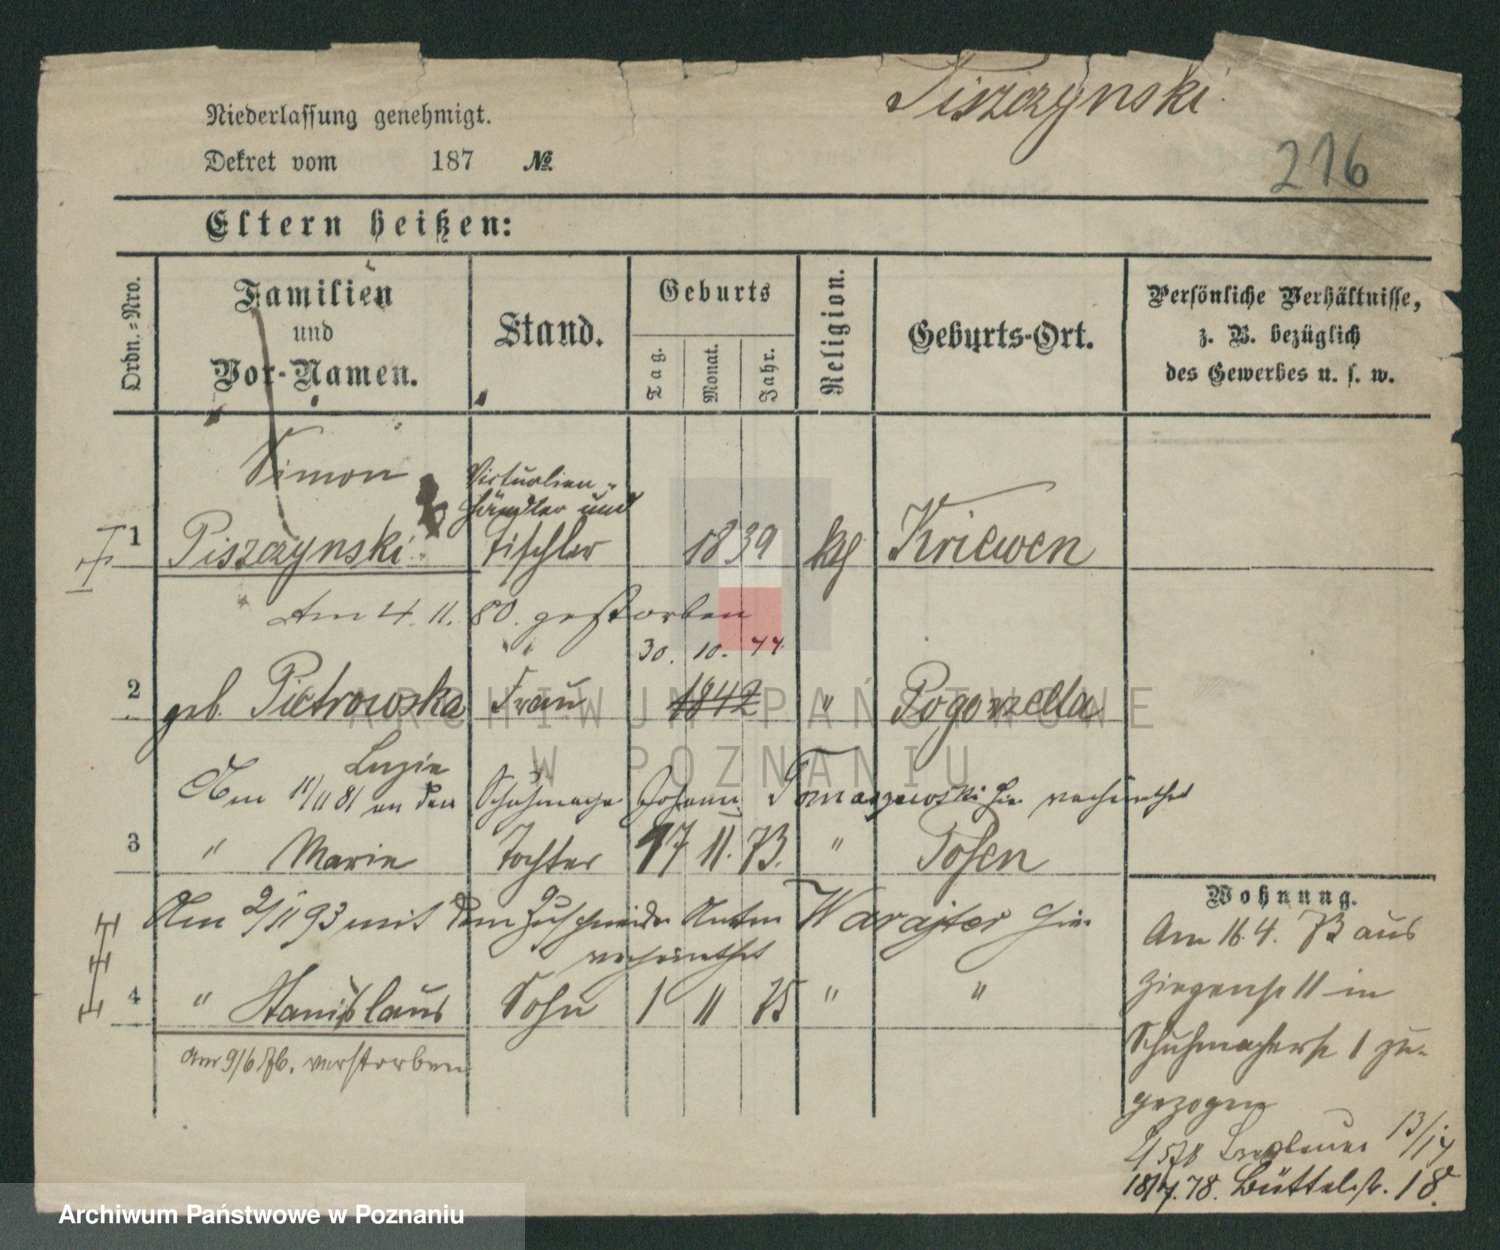 Piszczynski
216
Niederlassung genehmigt.
Dekret vom 187 №
Eltern heißen:
Ordn.-Nro.
Familien
und
Vor-Namen.
Stand.
Geburts
Tag.
Monat.
Jahr.
Religion.
Geburts-Ort.
Persönliche Verhältnisse,
z. B. bezüglich
des Gewerbes u. s. w.
Simon Victualien-
händler und
1 Piszczynski Tischler 1839 kg Kriewen
Am 4. 11. 80. gestorben
30. 10. 44
2 geb. Pietrowska Frau 1842 " Pogorzella
Luzie
Am 11/11 81 an den Schuhmacher Johann Tomaszewski hier verheirathet
3 " Marie Tochter 17 11. 73. " Posen
Am 2/11 93 mit dem Zuschneider Anton Warajter hier
verheirathet
4 " Stanislaus Sohn 1 11 75 " "
Am 9/6 76. verstorben
Wohnung.
Am 16. 4. 73 aus
Ziegenstr 11 in
Schuhmacherstr 1 zu-
gezogen
578 Breslauer 13/14
18/4. 78. Büttelstr. 18.
ARCHIWUM PAŃSTWOWE
W POZNANIU
Archiwum Państwowe w Poznaniu